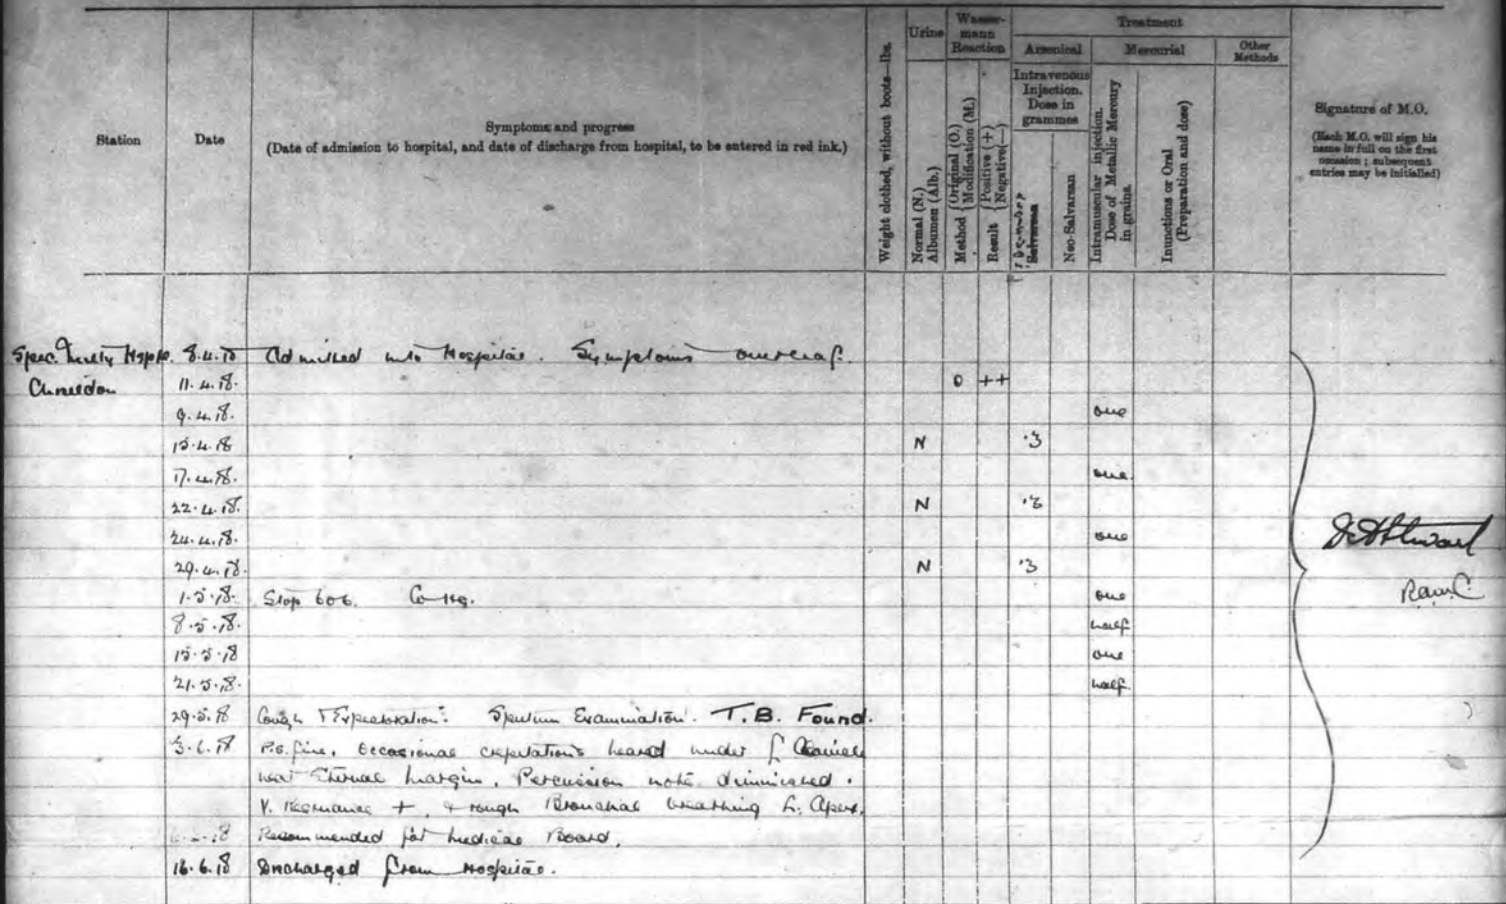 Station
Date
Symptoms and progress
(Date of admission to hospital, and date of discharge from hospital, to be entered in red ink.)
Weight clothed, without boots—lbs.
Urine
Normal (N.)
Albumen (Alb.)
Wasser-
mann
Reaction
Method {Original (O.) Modification (M.)
Result {Positive (+) Negative (—)
Treatment
Arsenical
Intravenous
Injection.
Dose in
grammes
Salvarsan
Neo-Salvarsan
Mercurial
Intramuscular injection.
Dose of Metallic Mercury
in grains.
Inunctions or Oral
(Preparation and dose)
Other
Methods
Signature of M.O.
(Each M.O. will sign his
name in full on the first
occasion ; subsequent
entries may be initialled)
Spec. Hosp. 8.4.18 Admitted into Hospital. Symptoms overleaf.
11.4.18. O ++
9.4.18. one
15.4.18 N .3
17.4.18. one.
22.4.18. N .3
24.4.18. one
29.4.18. N .3
1.5.18. Stop 606. one
8.5.18. half
15.5.18 one
21.5.18. half.
29.5.18 Cough & Expectoration. Sputum Examination. T.B. Found.
3.6.18 Occasional crepitations heard under L Clavicle
near Sternal margin. Percussion note diminished.
V. Resonance +, & rough Bronchial breathing L. Apex.
Recommended for Medical Board.
16.6.18 Discharged from Hospital.
RAMC